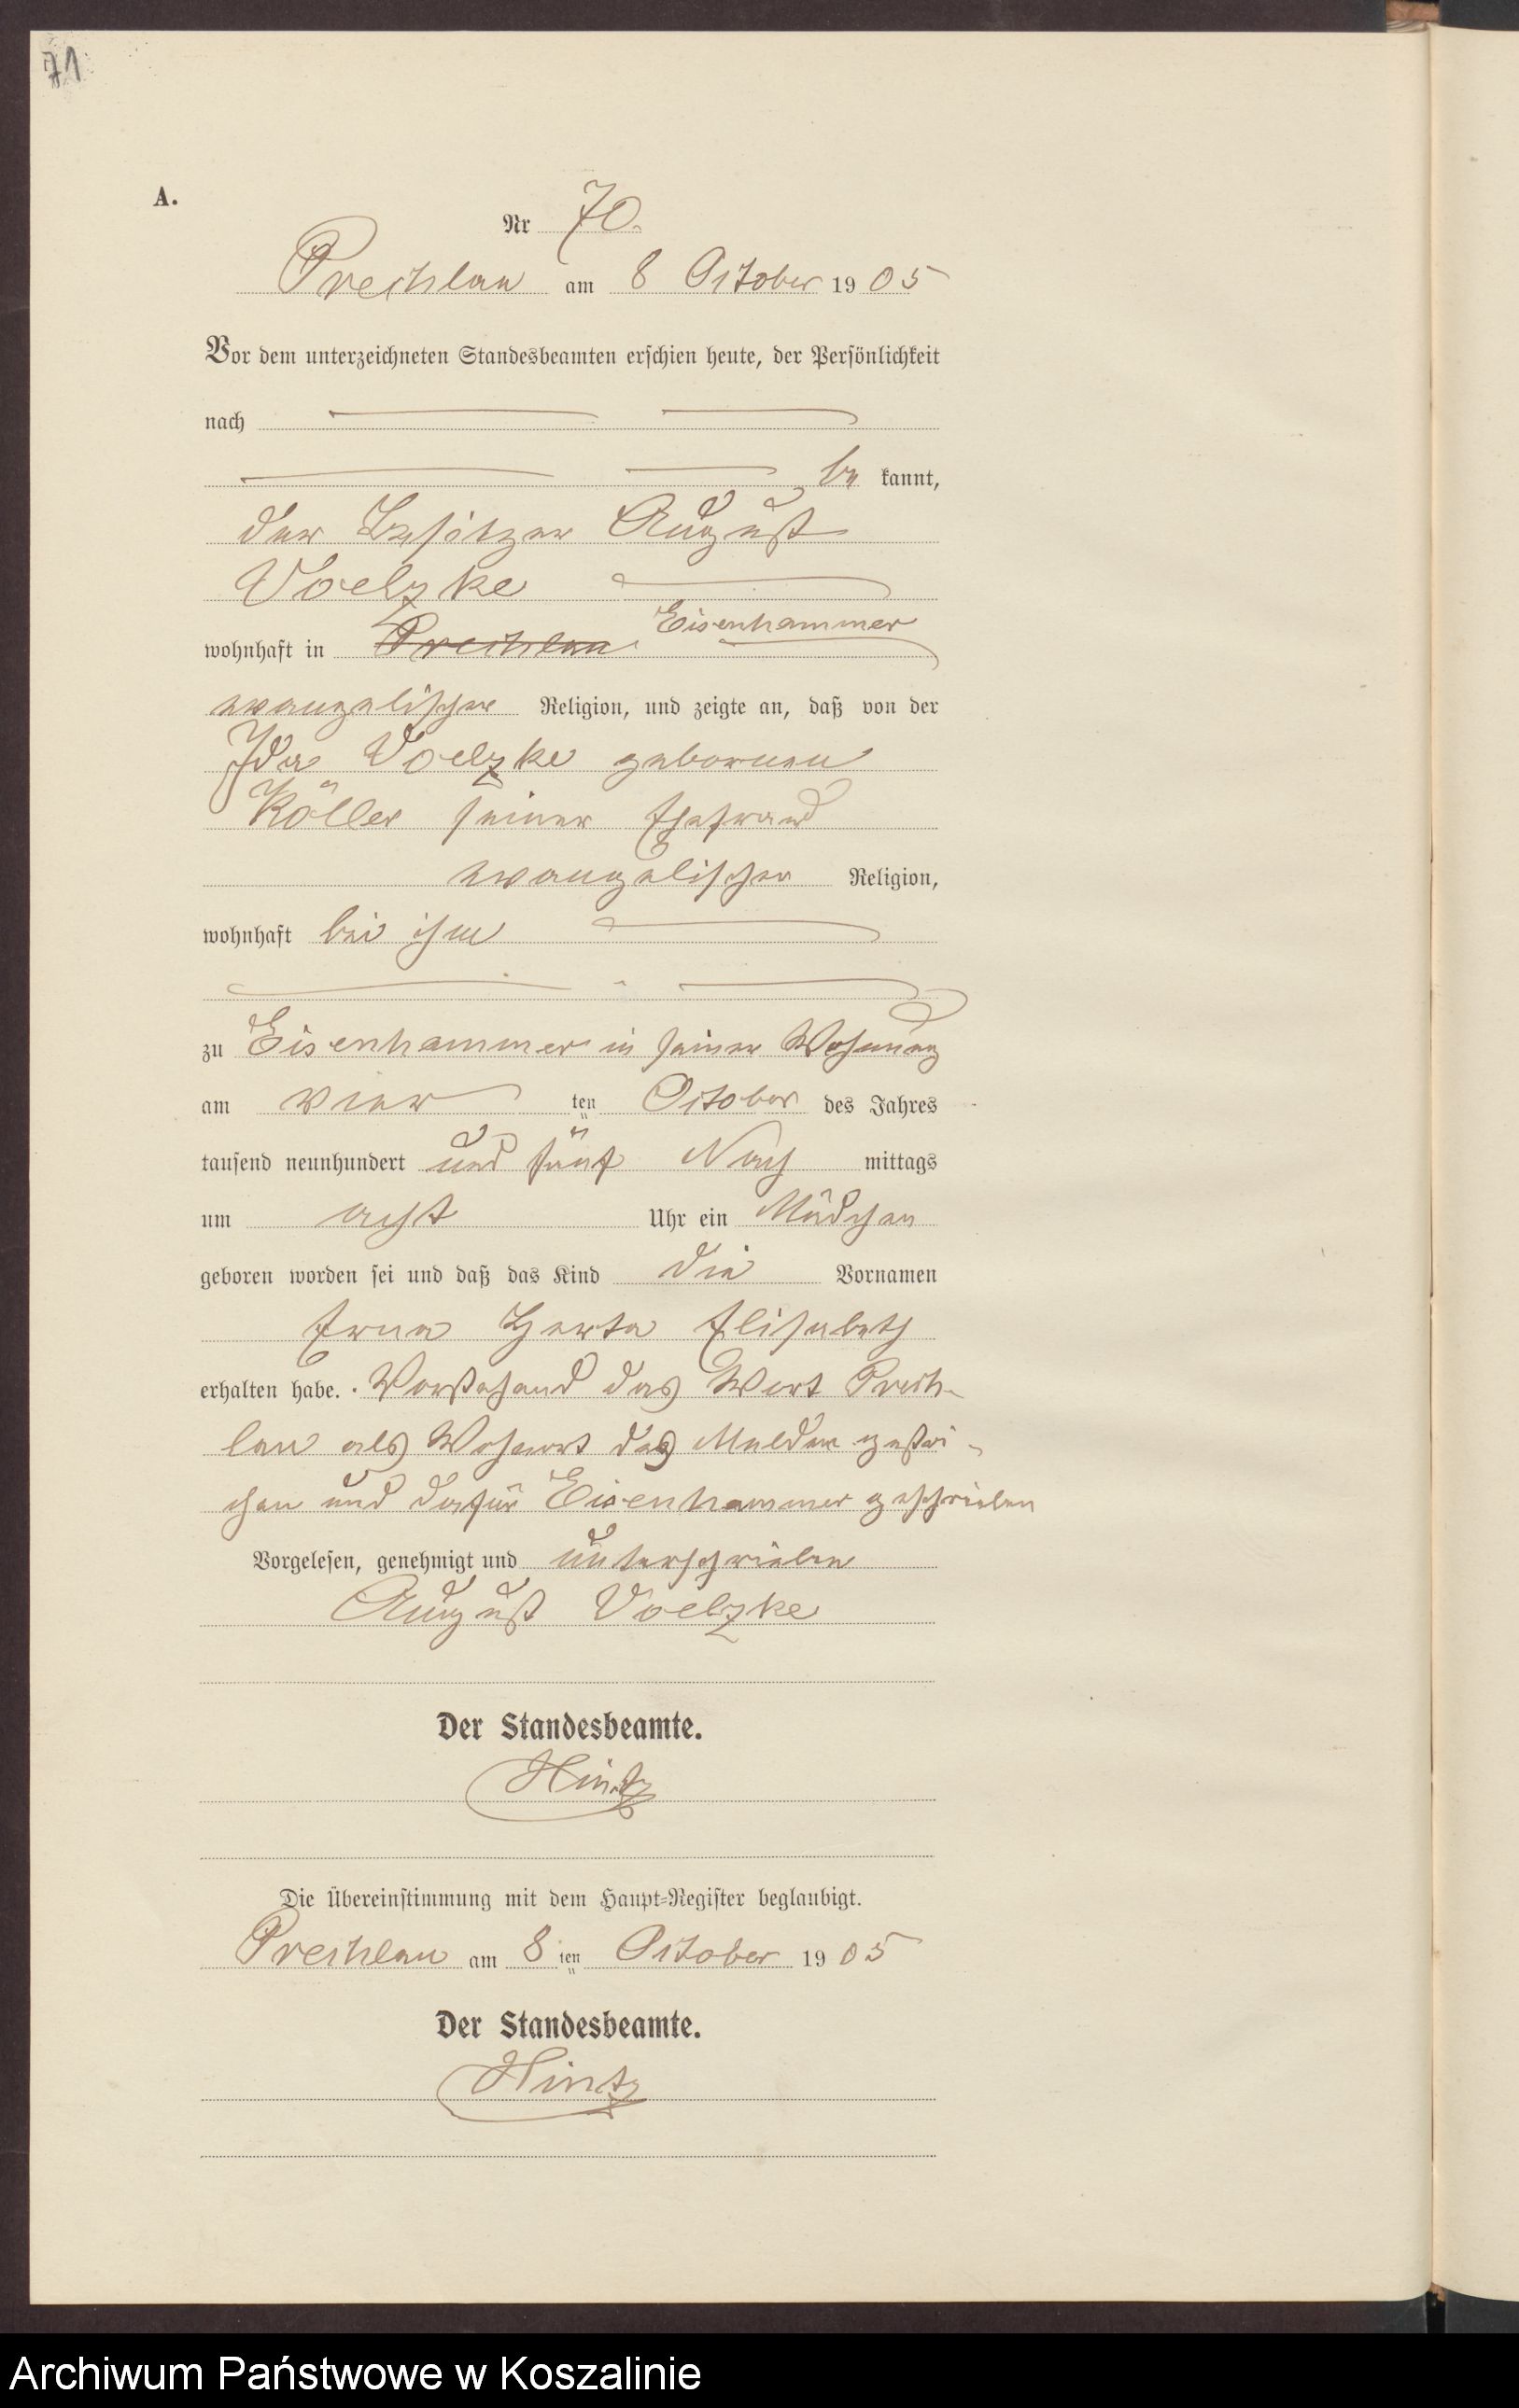 71
A.
Nr 70.
Prechlau am 8 October 1905
Vor dem unterzeichneten Standesbeamten erschien heute, der Persönlichkeit
nach
be kannt,
der Besitzer August
Voelzke
wohnhaft in Prechlau Eisenhammer
evangelischer Religion, und zeigte an, daß von der
Ida Voelzke geborenen
Köller seiner Ehefrau
evangelischer Religion,
wohnhaft bei ihm
zu Eisenhammer in seiner Wohnung
am vier ten October des Jahres
tausend neunhundert und fünf Nach mittags
um acht Uhr ein Mädchen
geboren worden sei und daß das Kind die Vornamen
Erna Herta Elisabeth
erhalten habe. Vorstehend das Wort Prech-
lau als Wohnort des Melder gestri-
chen und dafür Eisenhammer geschrieben
Vorgelesen, genehmigt und unterschrieben
August Voelzke
Der Standesbeamte.
Hintz
Die Übereinstimmung mit dem Haupt-Register beglaubigt.
Prechlau am 8 ten October 1905
Der Standesbeamte.
Hintz
Archiwum Państwowe w Koszalinie